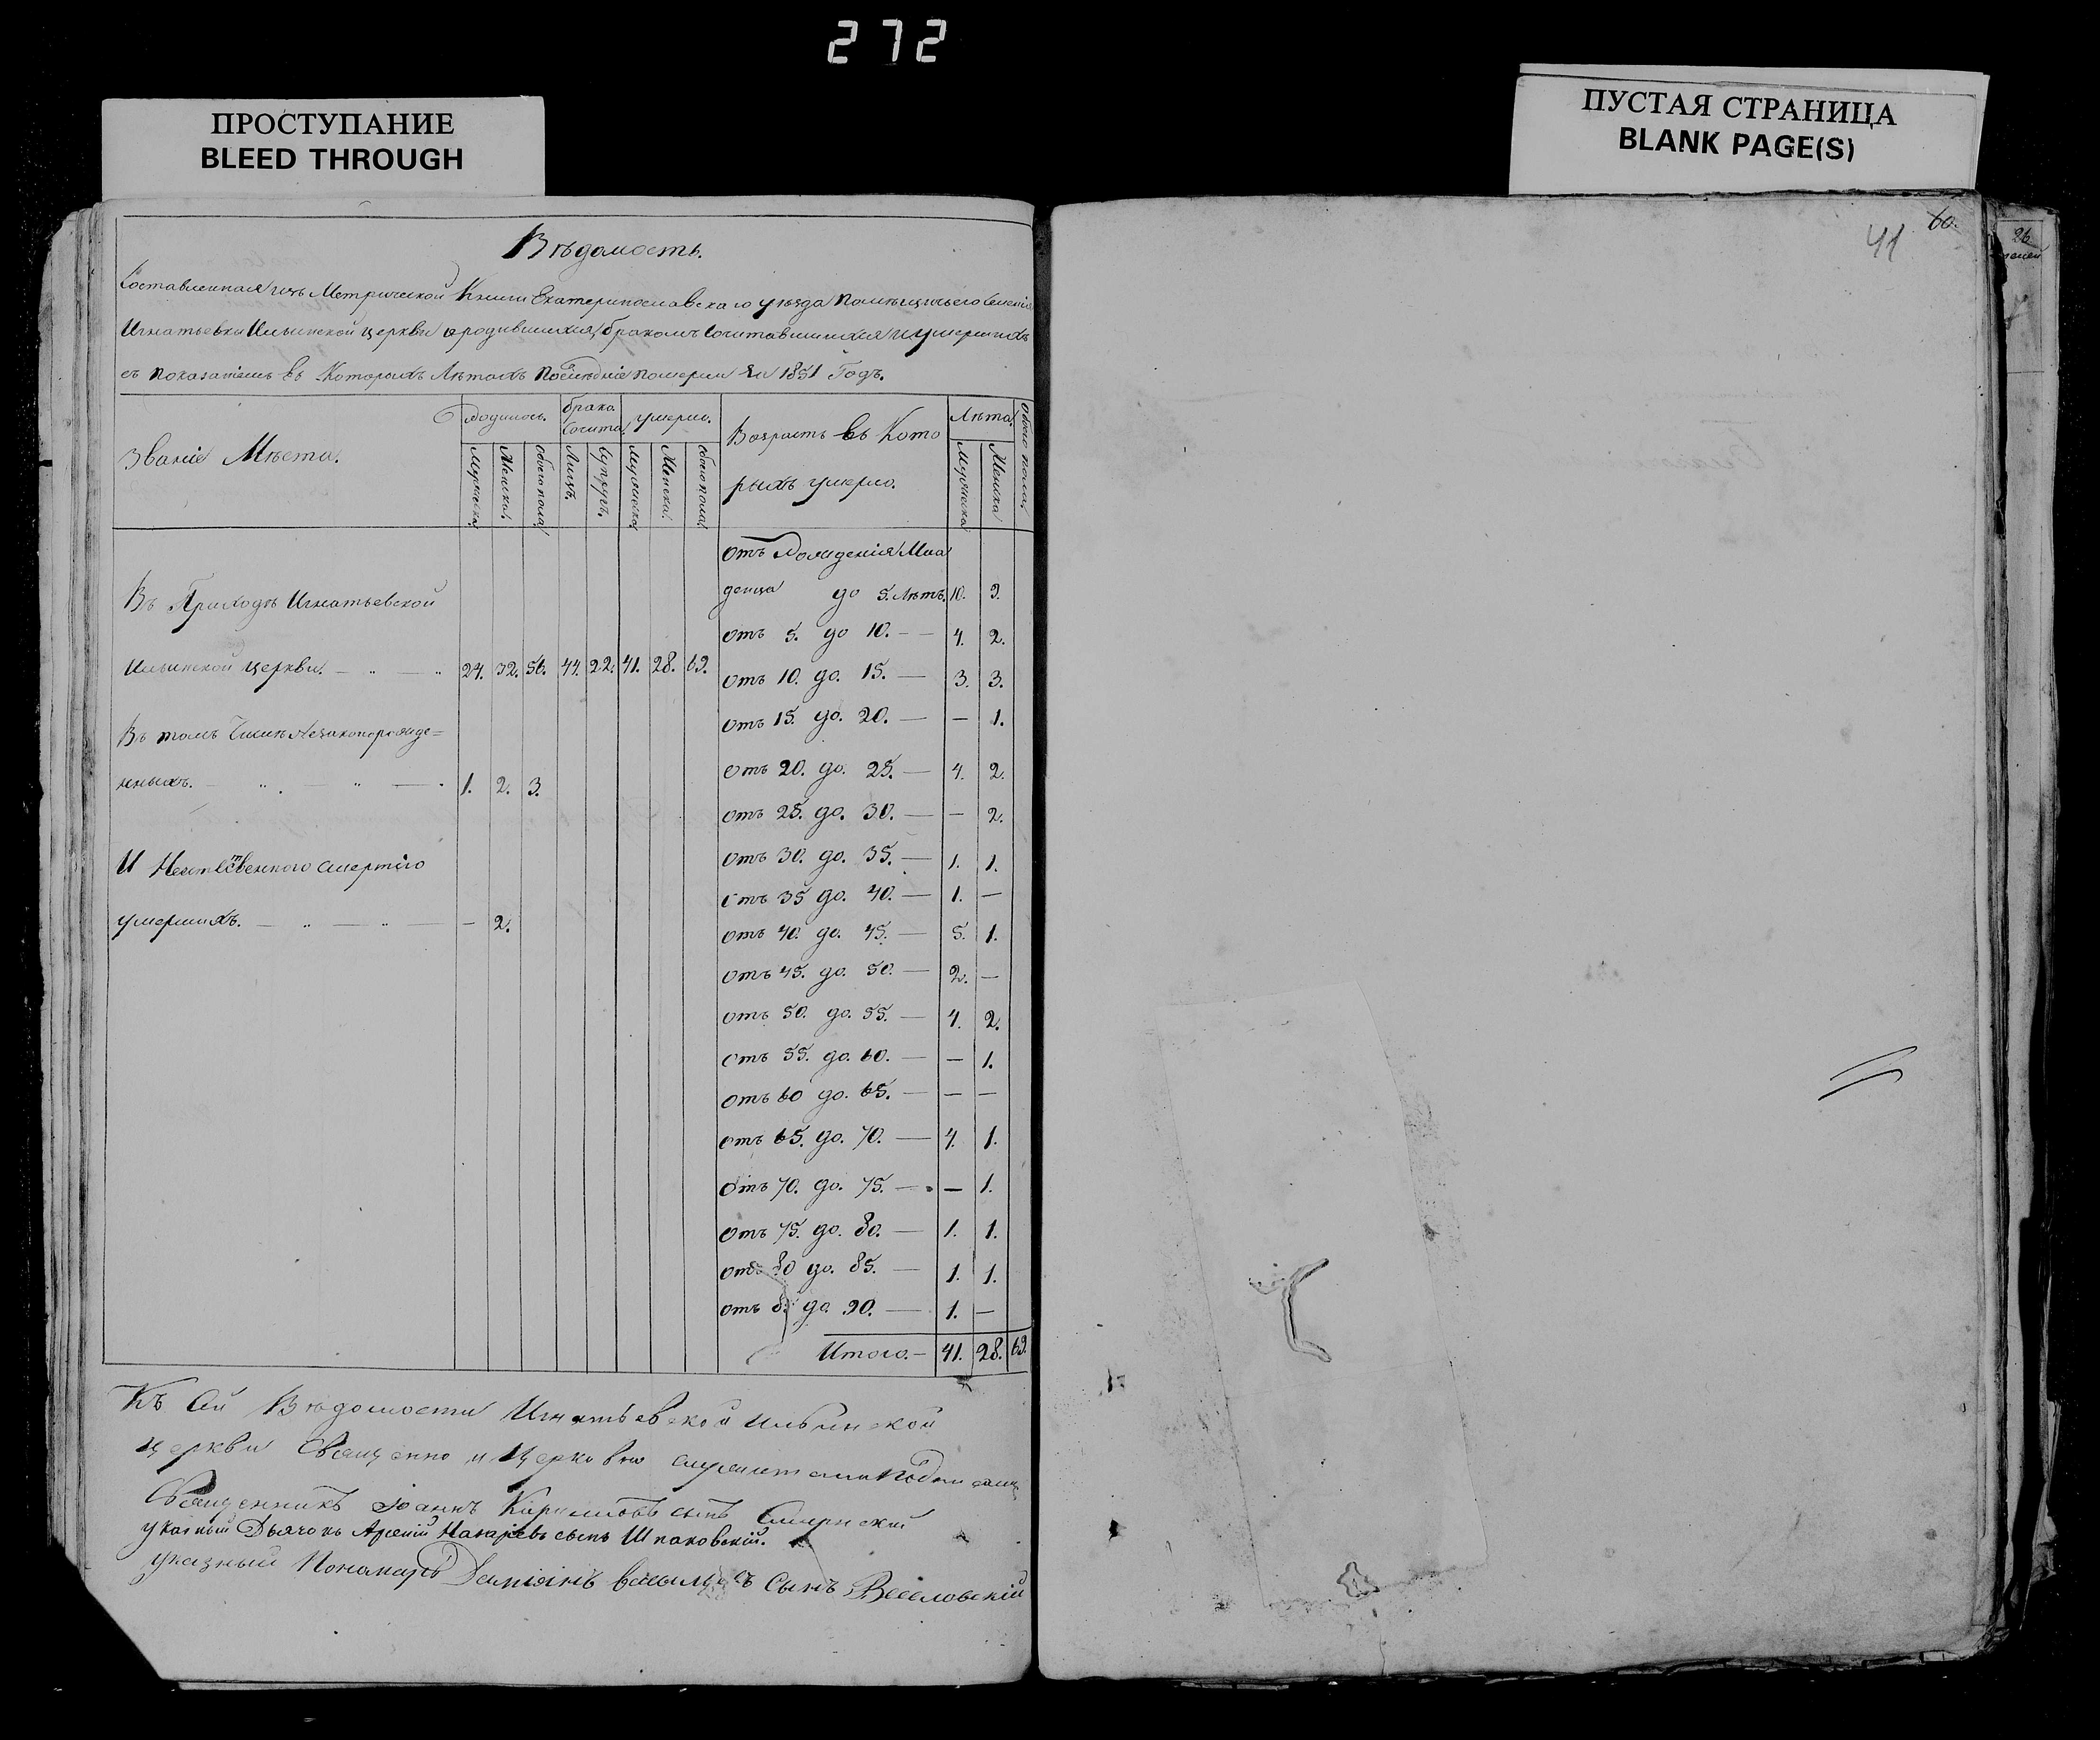 272
ПРОСТУПАНИЕ
BLEED THROUGH
ПУСТАЯ СТРАНИЦА
BLANK PAGE(S)
Вѣдомость.
Составленная изъ Метрической Книги Екатеринославскаго уѣзда помѣщичьего Селенія
Игнатьевки Ильинской церкви о родившихся, бракомъ Сочитавшихся и умершихъ
съ показаніемъ въ Которыхъ Лѣтахъ Послѣдніе померли За 1851 Годъ.
Званіе Мѣста. Родилось. брака Сочита. умерло. Возрастъ въ Кото Лѣта Обоего пола
рыхъ умерло.
Мужеска Женска Обоего пола Лицъ. Супругъ. Мужеска Женска Обоего пола Мужеска Женска
отъ Рожденія Мла
Въ Приходѣ Игнатьевской
денца до 5. Лѣтъ. 10. 9.
отъ 5. до 10. — — 4. 2.
Ильинской церкви. — „ — „ 24. 32. 56. 44. 22. 41. 28. 69.
отъ 10. до. 15. — 3. 3.
отъ 15. до. 20. — — 1.
Въ томъ Числѣ Незаконорожде=
нныхъ. — „ . — „ — . 1. 2. 3.
отъ 20. до. 25. — 4. 2.
отъ 25. до. 30. — — 2.
отъ 30. до. 35. — 1. 1.
И Неестственного смертію
отъ 35 до. 40. — 1. —
умершихъ. — „ — „ — — 2.
отъ 40. до. 45. — 5. 1.
отъ 45. до. 50. — 2. —
отъ 50. до. 55. — 4. 2.
отъ 55. до. 60. — — 1.
отъ 60 до. 65. — — —
отъ 65. до. 70. — 4. 1.
отъ 70. до. 75. — — 1.
отъ 75. до. 80. — 1. 1.
отъ 80 до. 85. — 1. 1.
отъ 8 до 90. — 1. —
Итого. — 41. 28. 69.
Къ Сей Вѣдомости Игнатьевской Ильинской
церкви Священно и Церковно служители
Священникъ Іоаннъ Кириловъ сынъ
указный Дьячокъ Арсеній Назаріевъ сынъ Шпаковскій.
указный Пономарь Даміянъ Васильевъ Сынъ Веселовскій
41 60.
26